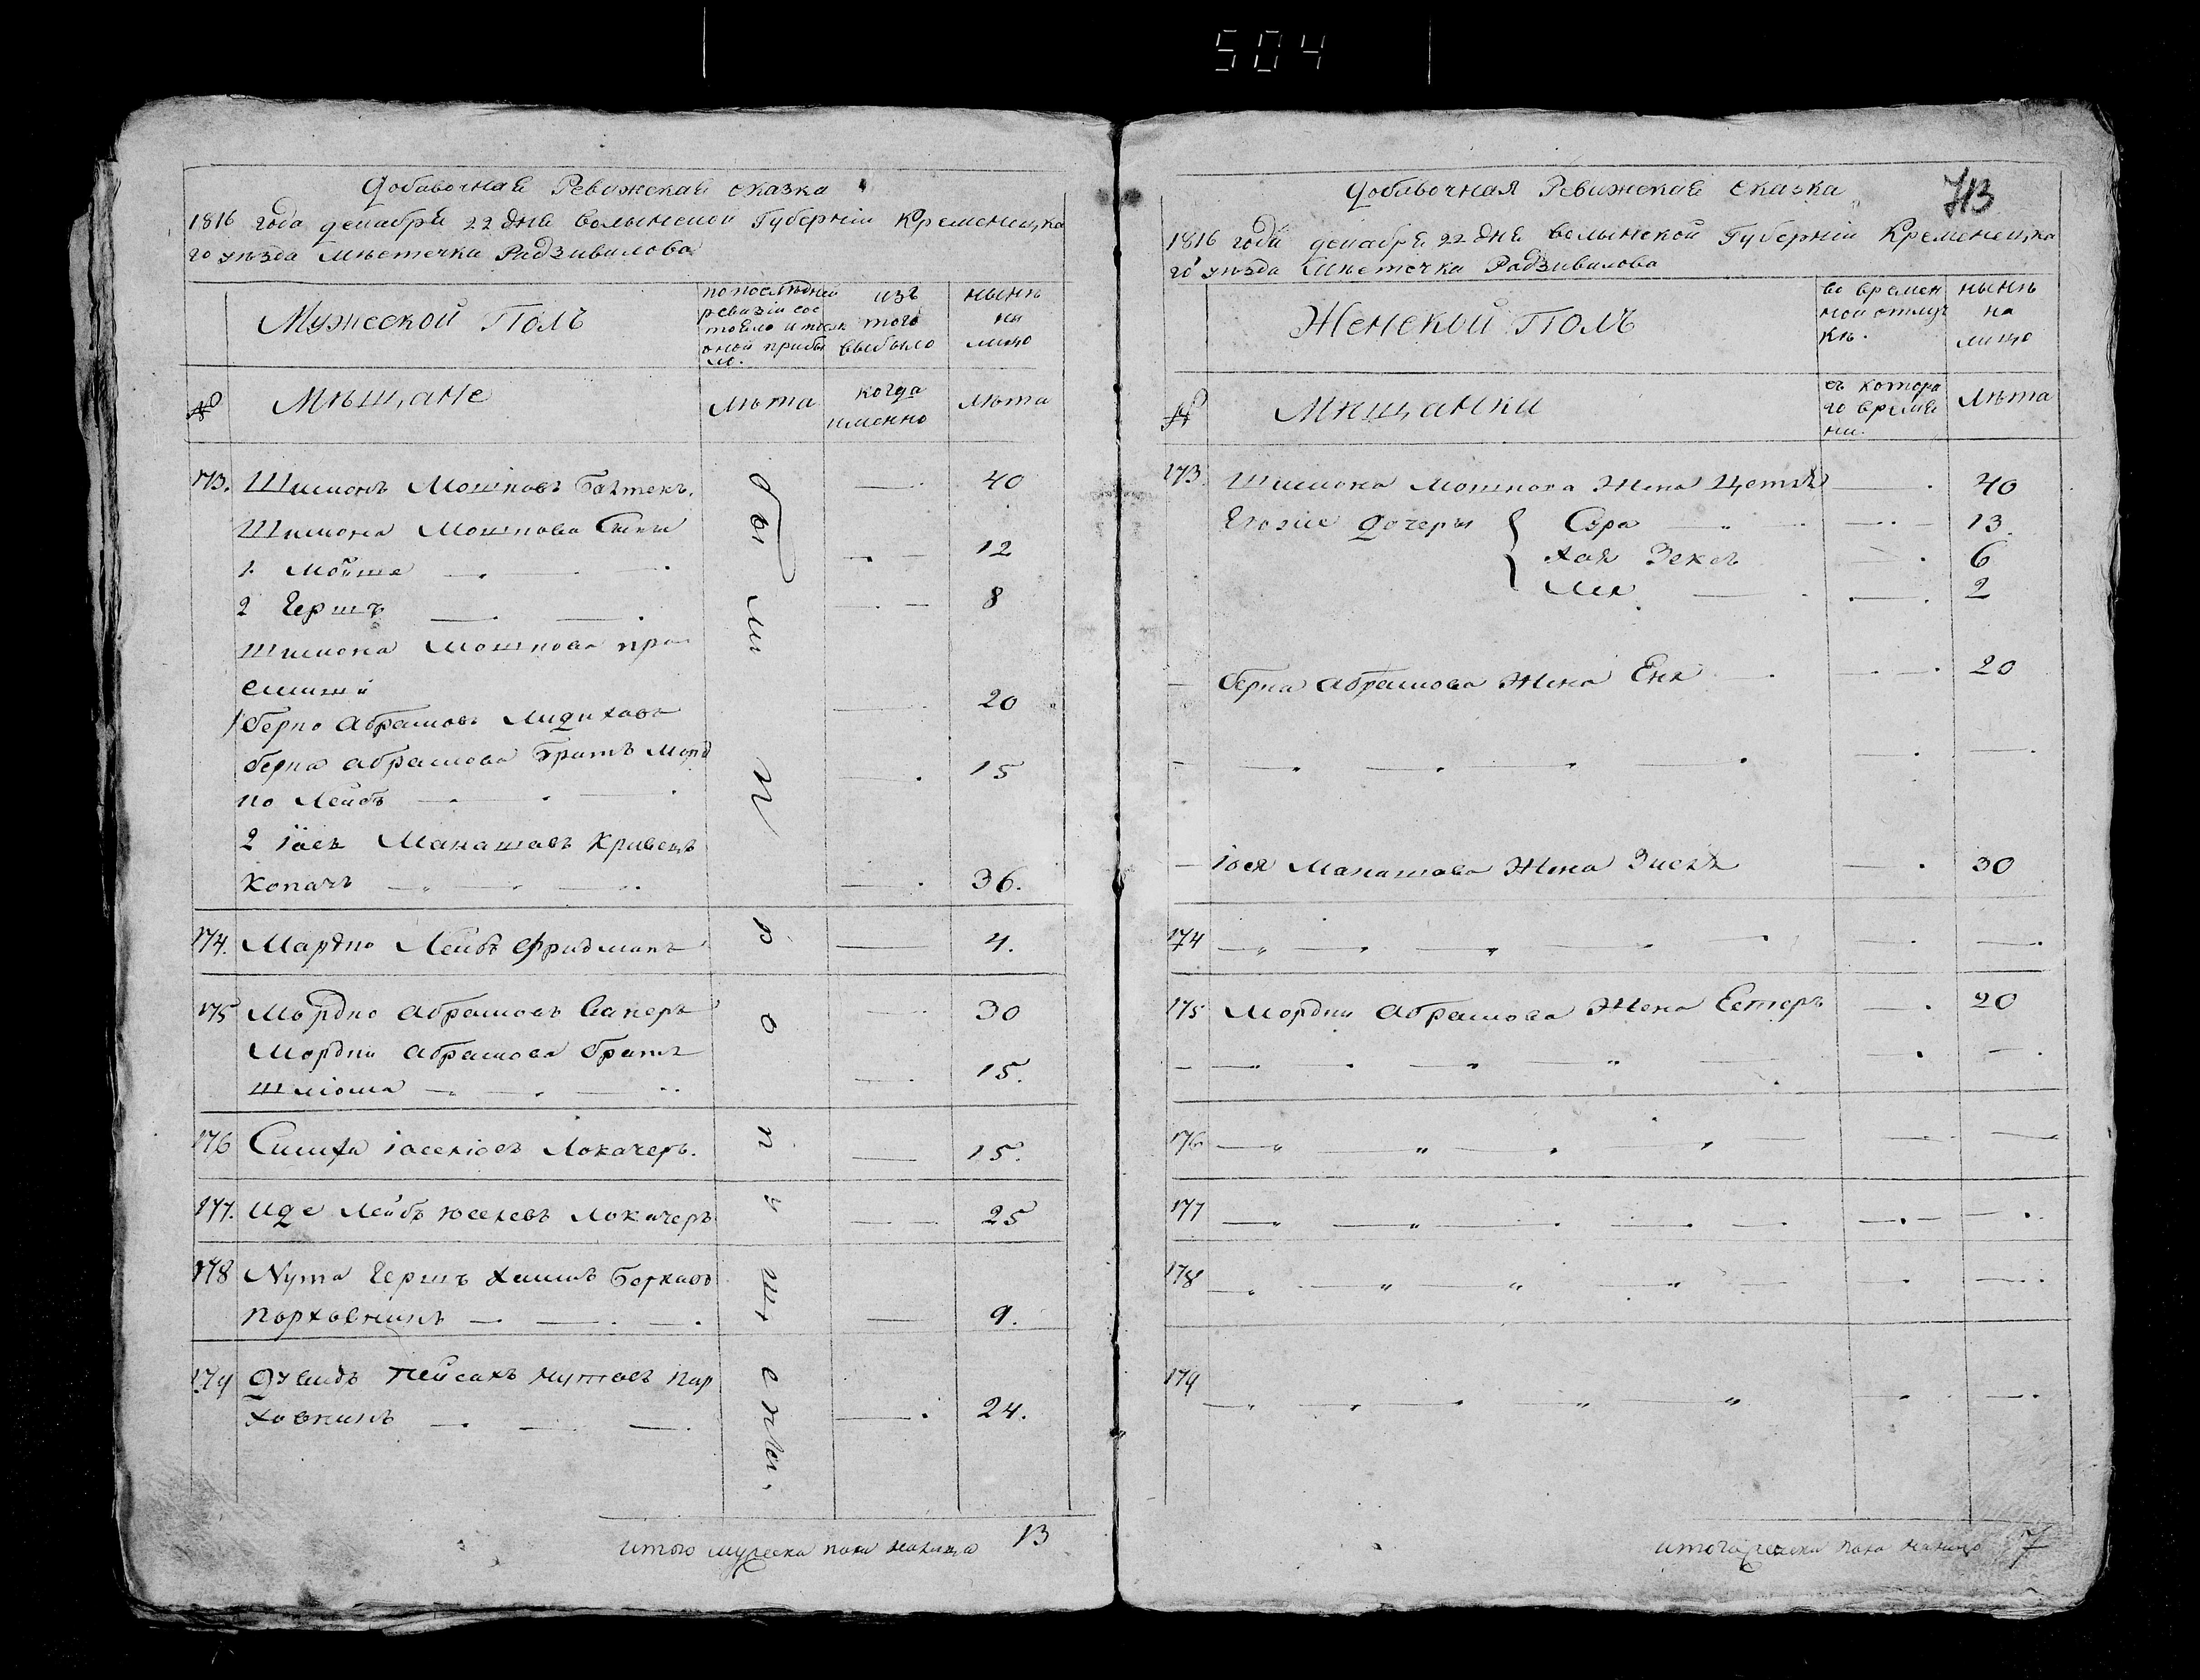 504
Добавочная Ревижская сказка
1816 года декабря 22 дня волынской Губерніи Кременецка
го уѣзда мѣстечка Радзивилова
Мужеской Полъ
по послѣдней
ревизіи сос
тояло и посля
оной прибы
ло.
изъ
того
выбыло
нынѣ
на
лицо
№
Мѣщане
лѣта
когда
именно
лѣта
были пропущены.
173. Шимонъ Мошковъ Бахтекъ. — 40
Шимона Мошкова Сыны
1. Мойше — 12
2 Гершъ — 8
Шимона Мошкова при
емыши
1 Берко Абрамовъ — 20
Берка Абрамова Братъ Морд
ко Лейбъ — 15
2 Іосъ Манашовъ Кривецъ
Копачъ — 36.
174. Мордко Лейбъ Фридманъ — 4.
175 Мордко Абрамовъ Саперъ — 30
Мордки Абрамова Братъ
Шліома — 15.
176 Симха Іоселіовъ Локачеръ. — 15.
177. Иде Лейбъ Юселевъ Локачеръ — 25
178 Нута Гершъ Хаимъ Берковъ
Порховникъ — 9.
179 Дувидъ Пейсахъ Нутовъ Пор
ховникъ — 24.
итого мужеска пола налицо 13
Добавочная Ревижская сказка
713
1816 года декабря 22 дня волынской Губерніи Кременецка
го уѣзда мѣстечка Радзивилова
Женской Полъ
во времен
ной отлуч
кѣ.
нынѣ
на
лицо
№
Мѣщанки
съ котора
го време
ни.
Лѣта
173. Шимона Мошкова Жена — 40
Егоже Дочери { Сура — 13.
Хая — 6
Лея — 2
— Берка Абрамова Жена Ена — 20
— Іося Манашова Жена Зисль — 30
174
175 Мордки Абрамова Жена Естеръ — 20
176
177
178
179
итого женска пола налицо 7